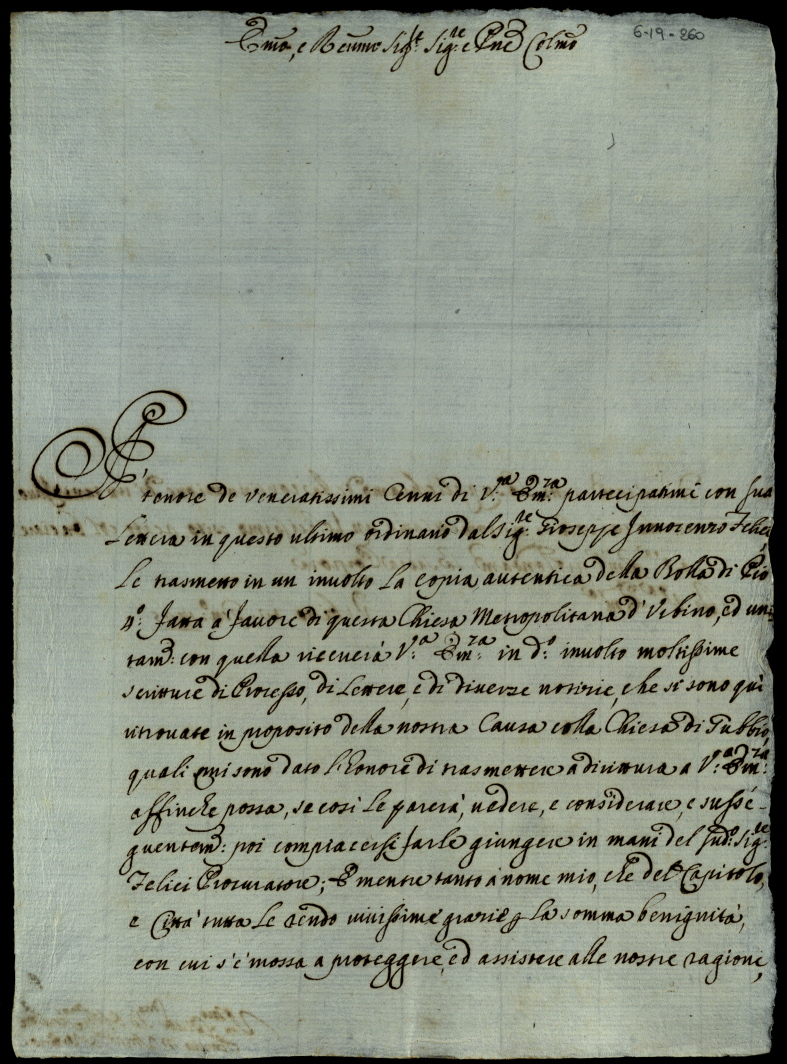 Emo, e Revmo Sigr. Sigre e Pne Colmo
6-19-260
A' tenore de veneratissimi Cenni di V.ra Em.za partecipatimi con sua
Lettera in questo ultimo ordinario dal Sig.re Gioseppe Innocenzo Felici
Le trasmetto in un involto la copia autentica della Bolla di Pio
4.o fatta à favore di questa Chiesa Metropolitana d'Urbino, ed uni-
tam: con quella riceverà V.ra Em.za in d.o involto moltissime
scritture di Processo, di Lettere, e di diverze notizie, che si sono quì
ritrovate in proposito della nostra Causa colla Chiesa di Gubbio,
quali mi sono dato l'honore di trasmettere à dirittura a V.ra Em.za
affinche possa, se così le parerà, vedere, e considerare, e susse-
quentem: poi compiacersi farle giungere in mani del sud.o Sig.re
Felici Procuratore; E mentre tanto à nome mio, che del Capitolo,
e Città tutta Le rendo vivissime grazie p la somma benignità,
con cui s'è mossa a proteggere, ed assistere alle nostre ragioni,